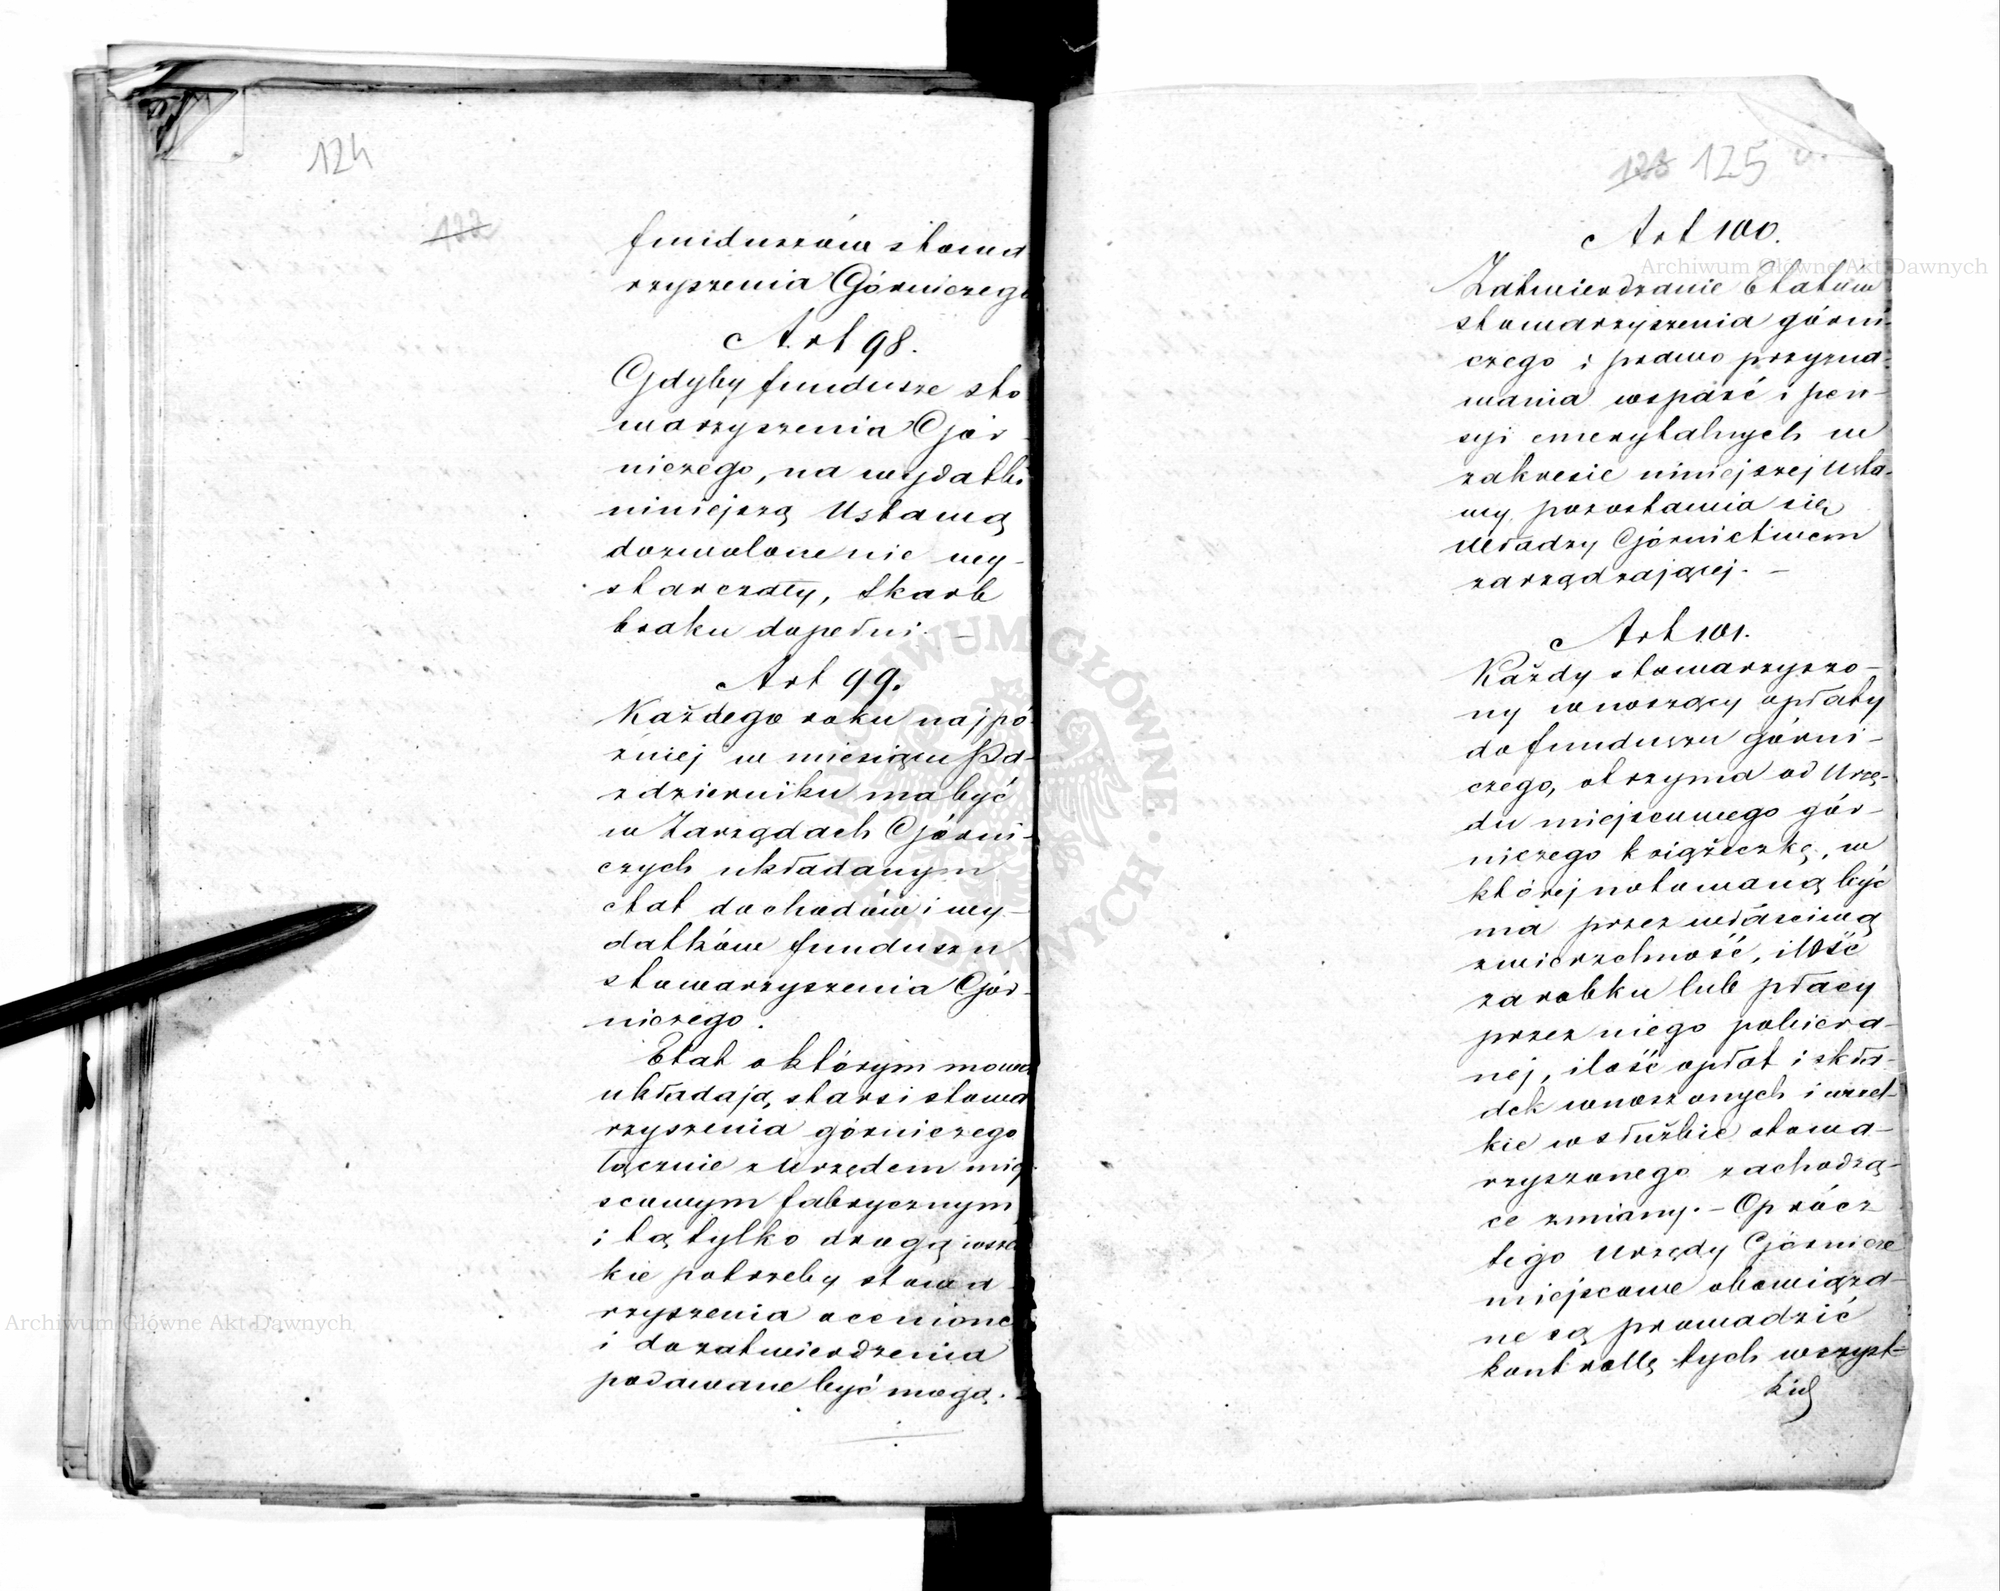 124
122
funduszów stowa
rzyszenia Górniczego
Art 98.
Gdyby fundusze sto
warzyszenia Gór-
niczego, na wydatki
niniejszą Ustawą
dozwolone nie wy-
starczały, Skarb
braku dopełni. -
Art 99.
Każdego roku najpó
źniej w miesiącu Pa-
zdzierniku ma być
w Zarządach Górni-
czych układanym
etat dochodów i wy-
datków funduszu
stowarzyszenia Gór-
niczego.
Etat o którym mowa
układają starsi stowa
rzyszenia górniczego
łącznie z Urzędem miej
scowym fabrycznym
i tą tylko drogą wszel
kie potrzeby stowa-
rzyszenia ocenione
i do zatwierdzenia
podawane być mogą. -
123 125
Art 100.
Zatwierdzanie Etatów
stowarzyszenia górni-
czego i prawo przyzna-
wania wsparć i pen-
syi emerytalnych w
zakresie niniejszej Usta-
wy pozostawia się
Władzy Górnictwem
zarządzającej. -
Art 101.
Każdy stowarzyszo-
ny wnoszący opłaty
do funduszu górni-
czego, otrzyma od Urzę-
du miejscowego gór-
niczego książeczkę, w
której notowaną być
ma przez właściwą
zwierzchność, ilość
zarobku lub płacy
przez niego pobiera-
nej, ilość opłat i skła-
dek wnoszonych i wszel-
kie w służbie stowa-
rzyszonego zachodzą-
ce zmiany. - Oprócz
tego Urzędy Górnicze
miejscowe obowiąza-
ne są prowadzić
kontrollę tych wszyst-
kich
Archiwum Główne Akt Dawnych
Archiwum Główne Akt Dawnych